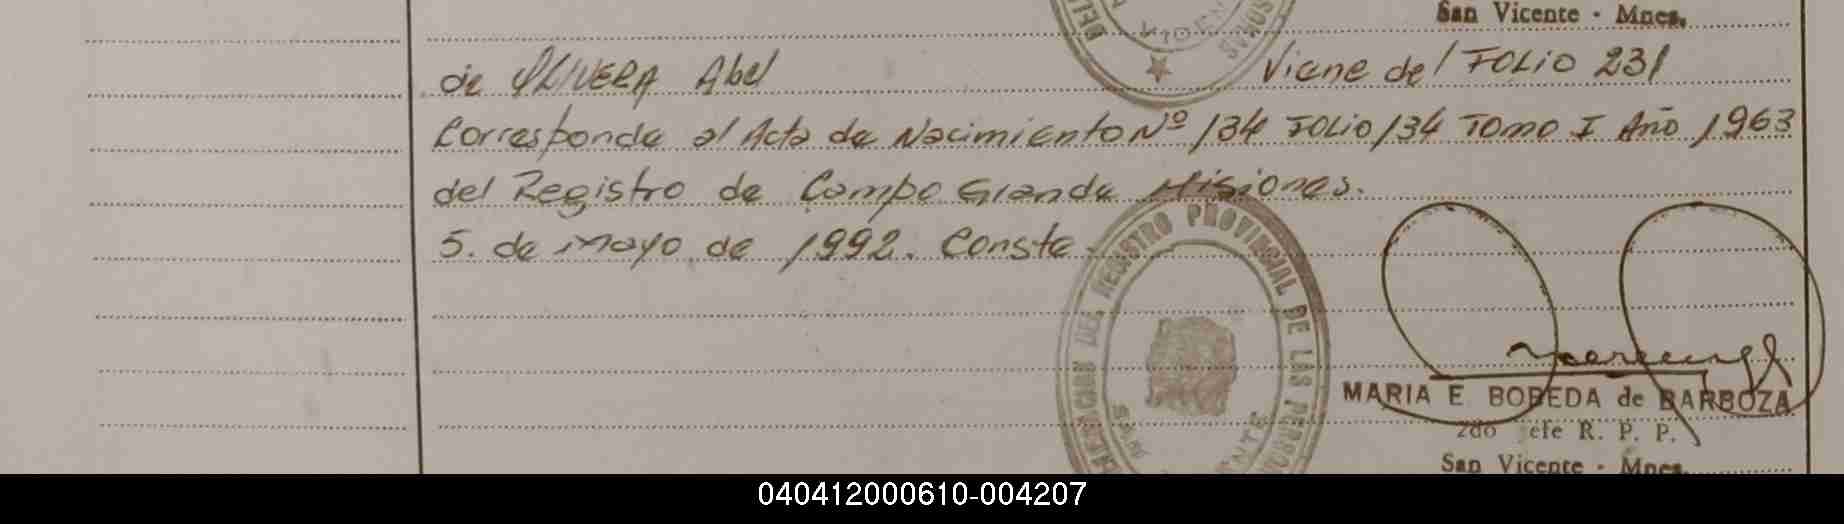 San Vicente - Mnes.
de OLIVERA Abel Viene del FOLIO 231
Corresponde al Acta de Nacimiento Nº 134 FOLIO 134 TOMO I Año 1963
del Registro de Campo Grande Misiones.
5. de Mayo de 1992. Conste
DELEGACION DEL REGISTRO PROVINCIAL DE LAS PERSONAS
MARIA E BOBEDA de BARBOZA
2do efe R. P. P.
San Vicente - Mnes.
040412000610-004207